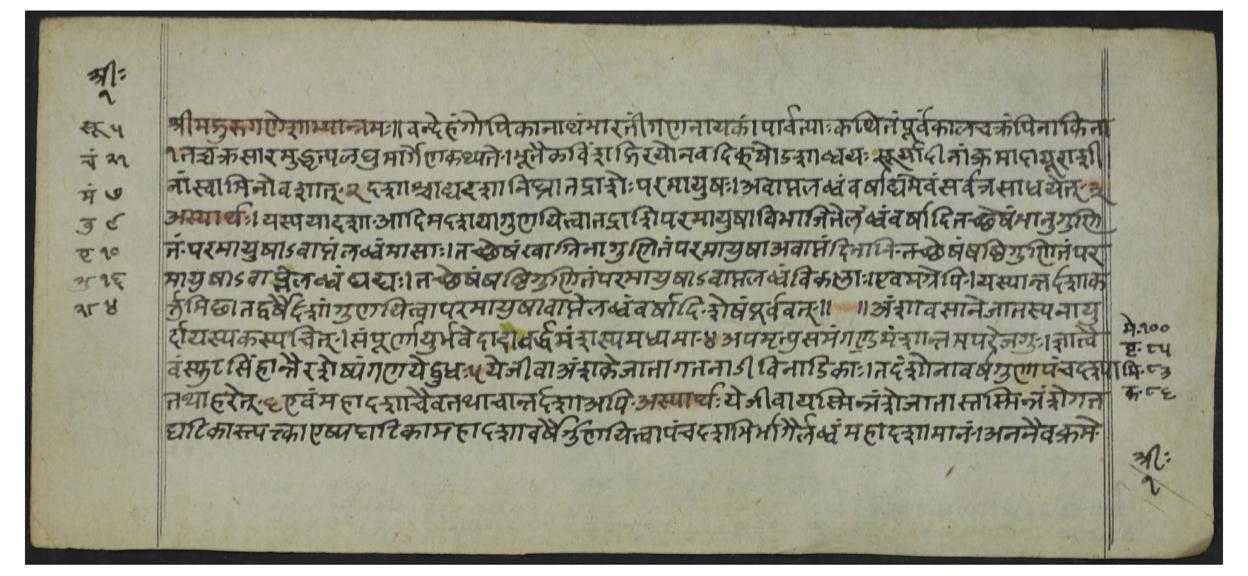 श्रीः
१
सू ५
चं २१
मं ७
बु ९
बृ १०
शु १६
श ४
श्रीमद्गुरुगणेशाभ्यान्नमः॥ वन्देहंगोपिकानाथंभारतीगणनायकं। पार्वत्याःकथितंपूर्वंकालचक्रंपिनाकिना
१तच्चक्रसारमुद्धृत्यलघुमार्गेणकथ्यते। भूतैकविंशगिरयोनवदिक्षोडशाब्धयः सूर्यादीनांक्रमादायूराशी
नांस्वामिनोवशात् २ दशाश्चाथदशानिघ्नातद्राशेःपरमायुषः। अवाप्तलब्धंवर्षाद्यमेवंसर्वत्रसाधयेत् ३
अस्यार्थः। यस्ययादशाआदिमदशायागुणयित्वातद्राशिपरमायुषाविभाजितेलब्धंवर्षादितच्छेषंभानुगुणि
तंपरमायुषाऽवाप्तंलब्धंमासाः। तच्छेषंखाग्निनागुणितंपरमायुषाअवाप्तंदिनानितच्छेषंषष्ठिगुणितंपर
मायुषाऽवाप्तेलब्धंघट्यः। तच्छेषंषष्ठिगुणितंपरमायुषाऽवाप्तलब्धंविकलाः। एवमग्रेपि। यस्यान्तर्दशाक
र्तुमिछातद्वर्षैर्दशांगुणयित्वापरमायुषावाप्तेलब्धंवर्षादिशेषंपूर्ववत्॥ ॥ अंशावसानेजातस्यनायु
र्दायस्यकस्यचित्। संपूर्णायुर्भवेदादावर्द्धमंशस्यमध्यमा ४ अपमृत्युसमंगण्डमंशान्तमपरेजगुः। ज्ञात्वै
वंस्फुटसिंहान्तैरशेष्यंगणयेद्बुधः ५ येजीवाअंशकेजातागतनाडीविनाडिकाः। तदंशेनावर्षगुणपंचदशा
तथाहरेत् ६ एवंमहादशाचैवतथाचान्तर्दशाअपि अस्यार्थः येजीवायस्मिन्नंशेजातास्तस्मिन्नंशेगत
घटिकास्त्यत्काएष्यघटिकामहादशावर्षैर्गुणयित्वापंचदशभिर्भागैर्लब्धंमहादशामानं। अनेनैवक्रमे
मे १००
वृ ८५
मि ८३
क ८६
श्रीः
१